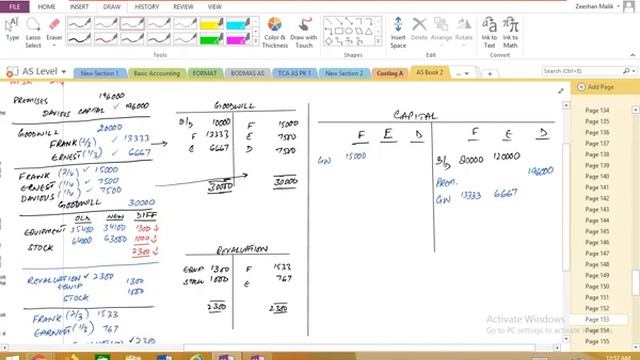 Zeeshan Malik
FILE HOME INSERT DRAW HISTORY REVIEW VIEW
Type
Lasso Select
Eraser
Pan
Color & Thickness
Insert Space
Delete
Arrange
Rotate
Ink to Text
Ink to Math
Tools
Shapes
Edit
Convert
AS Level
New Section 1
Basic Accounting
FORMAT
BODMAS AS
TCA AS PK 1
New Section 2
Costing A
AS Book 2
Search (Ctrl+E)
Add Page
Page 134
Page 143
Page 144
Page 145
Page 146
Page 147
Page 148
Page 149
Page 150
Page 151
Page 152
Page 153
Page 154
Page 155
PREMISES 196000
DAVIOUS CAPITAL ✓ 196000
GOODWILL 20000
FRANK (2/3) ✓ 13333
ERNEST (1/3) ✓ 6667
FRANK (2/4) ✓ 15000
ERNEST (1/4) ✓ 7500
DAVIOUS (1/4) ✓ 7500
GOODWILL 30000
OLD NEW DIFF
EQUIPMENT 35400 34100 1300 ↓
STOCK 64000 63000 1000 ↓
2300 ↓
REVALUATION ✓ 2300
EQUIP 1300
STOCK 1000
FRANK (2/3) 1533
EARNEST (1/3) 767
REVALUATION ✓ 2300
GOODWILL
B/D 10000 F 15000
F 13333 E 7500
E 6667 D 7500
30000 30000
REVALUATION
EQUIP 1300 F 1533
STOCK 1000 E 767
2300 2300
CAPITAL
F E D F E D
GW 15000
B/D 80000 120000
PREM. 196000
GW 13333 6667
Activate Windows
Go to PC settings to activate Windows.
12:57 AM